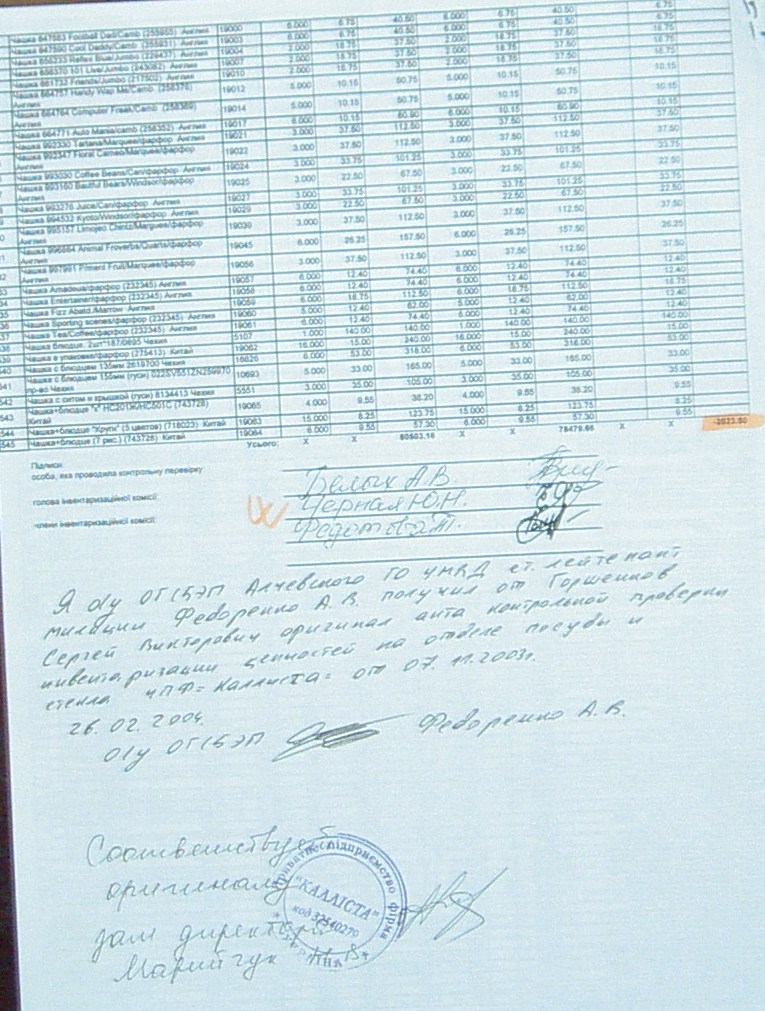 Чашка 647583 Football Dad/Camb (255930) Англия 19000 6.000 6.75 40.50 6.000 6.75 40.50 6.75
Чашка 647590 Cool Daddy/Camb (255931) Англия 19003 6.000 6.75 40.50 6.000 6.75 40.50 6.75
Чашка 656233 Reflex Blue/Jumbo (229437) Англия 19004 2.000 18.75 37.50 2.000 18.75 37.50 18.75
Чашка 656370 101 Live/Jumbo (243082) Англия 19007 2.000 18.75 37.50 2.000 18.75 37.50 18.75
Чашка 661732 Friends/Jumbo (217502) Англия 19010 2.000 18.75 37.50 2.000 18.75 37.50 18.75
Чашка 664757 Handy Wap Me/Camb (258376) Англия 19012 5.000 10.15 50.75 5.000 10.15 50.75 10.15
Чашка 664764 Computer Freak/Camb (258369) Англия 19014 5.000 10.15 50.75 5.000 10.15 50.75 10.15
Чашка 664771 Auto Mania/camb (258352) Англия 19017 6.000 10.15 60.90 6.000 10.15 60.90 10.15
Чашка 992330 Tartana/Marquee/фарфор Англия 19021 3.000 37.50 112.50 3.000 37.50 112.50 37.50
Чашка 992347 Floral Cameo/Marquee/фарфор Англия 19022 3.000 37.50 112.50 3.000 37.50 112.50 37.50
Чашка 993030 Coffee Beans/Can/фарфор Англия 19024 3.000 33.75 101.25 3.000 33.75 101.25 33.75
Чашка 993160 Bautiful Bears/Windsor/фарфор Англия 19025 3.000 22.50 67.50 3.000 22.50 67.50 22.50
Чашка 993276 Juice/Can/фарфор Англия 19027 3.000 33.75 101.25 3.000 33.75 101.25 33.75
Чашка 994532 Kyoto/Windsor/фарфор Англия 19029 3.000 22.50 67.50 3.000 22.50 67.50 22.50
Чашка 995157 Limojes Chintz/Marquee/фарфор Англия 19039 3.000 37.50 112.50 3.000 37.50 112.50 37.50
Чашка 996864 Animal Froverbs/Quarts/фарфор Англия 19045 6.000 26.25 157.50 6.000 26.25 157.50 26.25
Чашка 997991 Piment Fruit/Marquee/фарфор Англия 19056 3.000 37.50 112.50 3.000 37.50 112.50 37.50
Чашка Amadeus/фарфор (232345) Англия 19057 6.000 12.40 74.40 6.000 12.40 74.40 12.40
Чашка Entertainer/фарфор (232345) Англия 19058 6.000 12.40 74.40 6.000 12.40 74.40 12.40
Чашка Fizz Abstd./Marron Англия 19059 6.000 18.75 112.50 6.000 18.75 112.50 18.75
Чашка Sporting scenes/фарфор (232345) Англия 19060 5.000 12.40 62.00 5.000 12.40 62.00 12.40
Чашка Tea/Coffee/фарфор (232345) Англия 19061 6.000 12.40 74.40 6.000 12.40 74.40 12.40
538 Чашка блюдце. 2шт*187/0695 Чехия 5107 1.000 140.00 140.00 1.000 140.00 140.00 140.00
539 Чашка в упаковке/фарфор (275413) Китай 19062 16.000 15.00 240.00 16.000 15.00 240.00 15.00
540 Чашка с блюдцем 135мм 2619700 Чехия 16626 6.000 53.00 318.00 6.000 53.00 318.00 53.00
541 Чашка с блюдцем 155мм (гуси) 022SV551ZN259970 пр-во Чехия 10693 5.000 33.00 165.00 5.000 33.00 165.00 33.00
542 Чашка с ситом и крышкой (гуси) 8134413 Чехия 5551 3.000 35.00 105.00 3.000 35.00 105.00 35.00
543 Чашка+блюдце "к" HC201K/HC501C (743728) Китай 19065 4.000 9.55 38.20 4.000 9.55 38.20 9.55
544 Чашка+блюдце "Круги" (5 цветов) (718023) Китай 19063 15.000 8.25 123.75 15.000 8.25 123.75 8.25
545 Чашка+блюдце (7 рис.) (743728) Китай 19064 6.000 9.55 57.30 6.000 9.55 57.30 9.55
Усього: X X 80503.16 X X 78479.66 X -2023.50
Підписи:
особа, яка проводила контрольну перевірку
Белых А.В.
голова інвентаризаційної комісії:
Черная Ю.Н.
члени інвентаризаційної комісії:
Федотова
Я о/у ОГСБЭП Алчевского ГО УМВД ст. лейтенант
милиции Федоренко А.В. получил от Горшенков
Сергей Викторович оригинал акта контрольной проверки
инвентаризации ценностей на отделе посуды и
стекла ЧПФ=Каллиста= от 07.11.2003г.
26.02.2004
о/у ОГСБЭП Федоренко А.В.
Соответствует
оригиналу
зам директора
Марийчук
Приватне підприємство фірма
"КАЛЛІСТА"
код 32540270
Україна